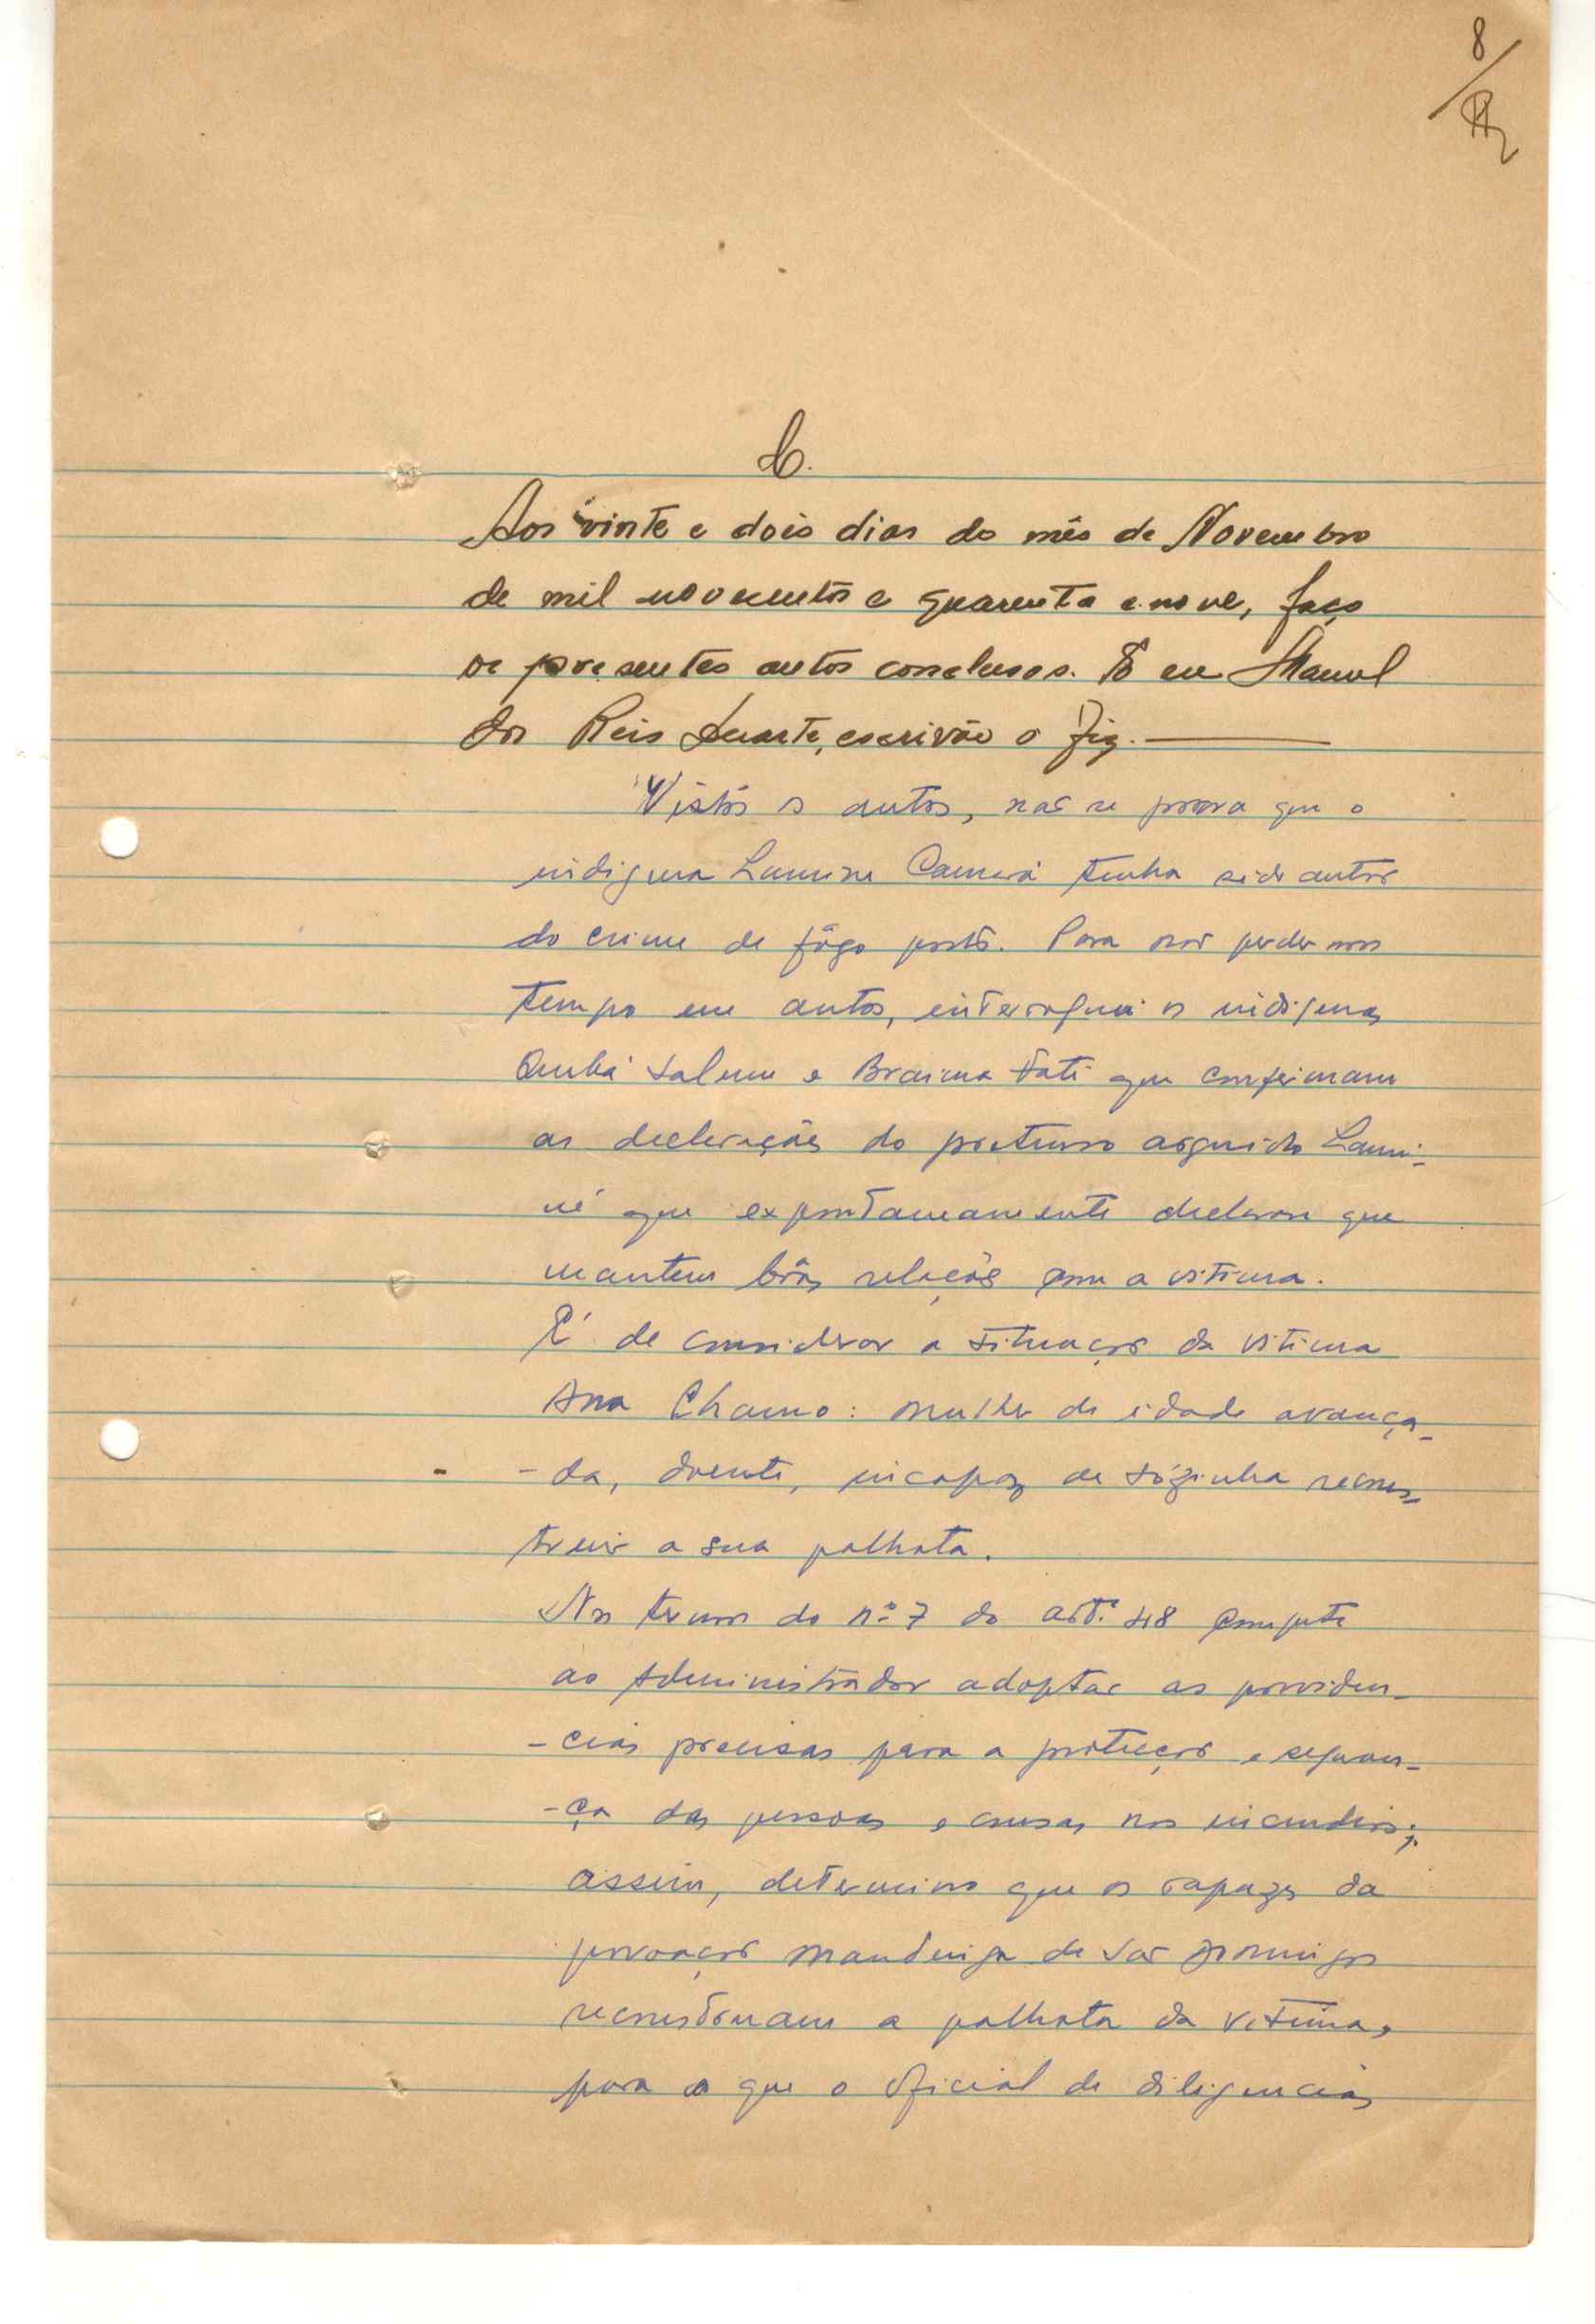 8
C.
Aos vinte e dois dias do mês de Novembro
de mil novecentos e quarenta e nove, faço
os presentes autos conclusos. E eu Manuel
dos Reis Duarte, escrivão o fiz.
Vistos os autos, não se prova que o
indigena Lamine Camará tenha sido autor
do crime de fôgo posto. Para não perdermos
tempo em autos, interroguei os indigenas
e Braima Fati que confirmam
as declarações do pretenso arguido Lami-
né que expontaneamente declarou que
mantem bôas relações com a vitima.
É de considerar a situação da vitima
Ana Chamo: mulher de idade avança-
-da, doente, incapaz de sózinha recons-
truir a sua palhota.
Nos termos do nº 7 do artº 48 compete
ao Administrador adoptar as providen-
-cias precisas para a protecção e seguran-
-ça das pessoas e cousas nos incendios;
assim, determino que os rapazes da
povoação mandinga de São Domingos
reconstruam a palhota da vitima,
para o que o oficial de diligencias